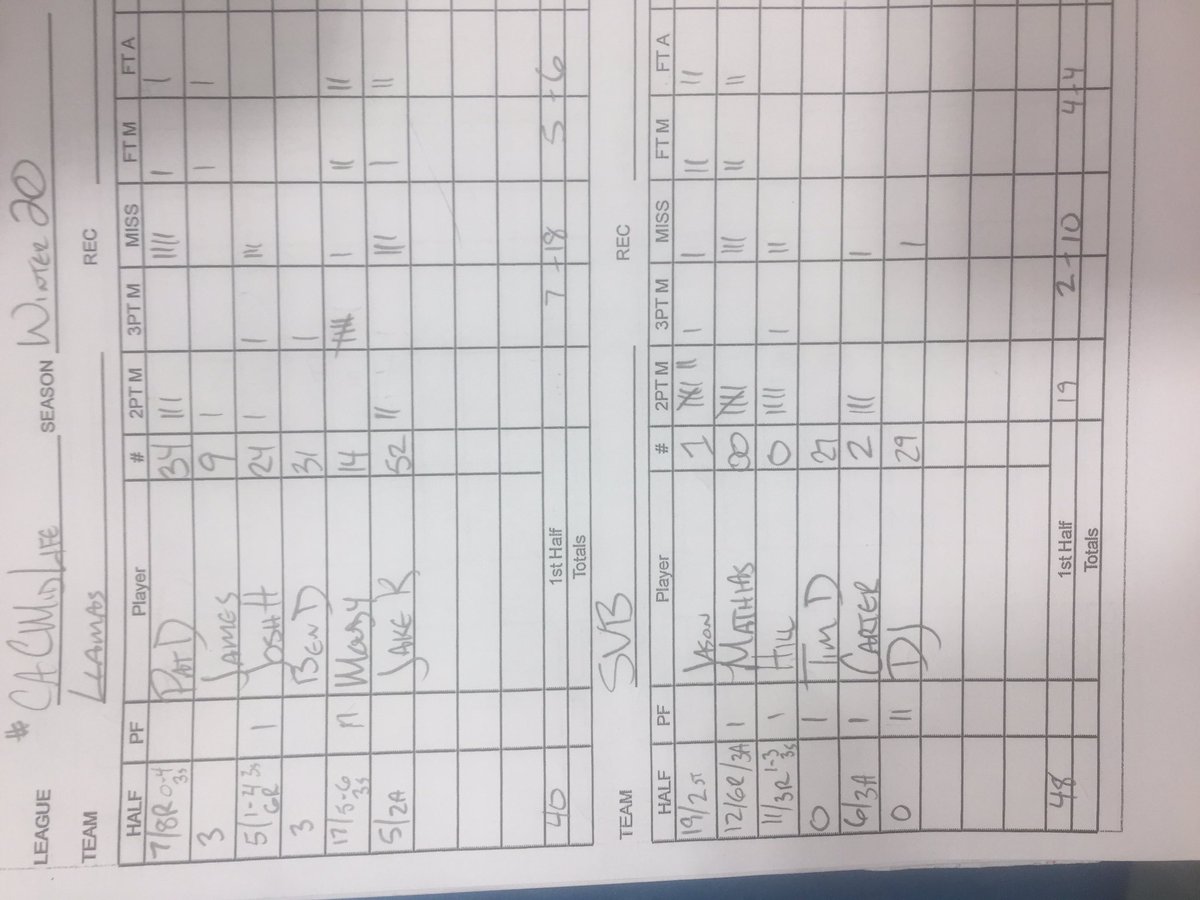 LEAGUE # CACMIDLIFE SEASON WINTER 20
TEAM LLAMAS REC
HALF PF Player # 2PT M 3PT M MISS FT M FT A
7/8R 0-4 3s PAT D 34 III IIII I I
3 JAMES 9 I I I
5/1-4 3s 6R I JOSH H 24 I I III
3 BEN D 31 I
17/5-6 3s II 14 IIII I II II
5/2A JAKE R 52 II III I II
40 1st Half 7-18 5-6
Totals
TEAM SVB REC
HALF PF Player # 2PT M 3PT M MISS FT M FT A
19/2ST JASON 1 IIII II I I II II
12/6R/3A I MATHIAS 00 IIII III II II
11/3R 1-3 3s I HILL 0 IIII I II
0 I TIM D 27
6/3A I CARTER 2 III I
0 II DJ 29 I
48 1st Half 19 2-10 4-4
Totals